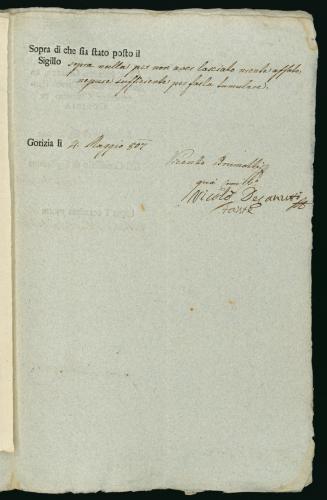 Sopra di che sia stato posto il
Sigillo sopra nulla per non aver lasciato niente affatto,
nepure sufficiente per farla tumulare.
Gorizia li 4. Maggio 807
Vicenzo
qual
Nicolò